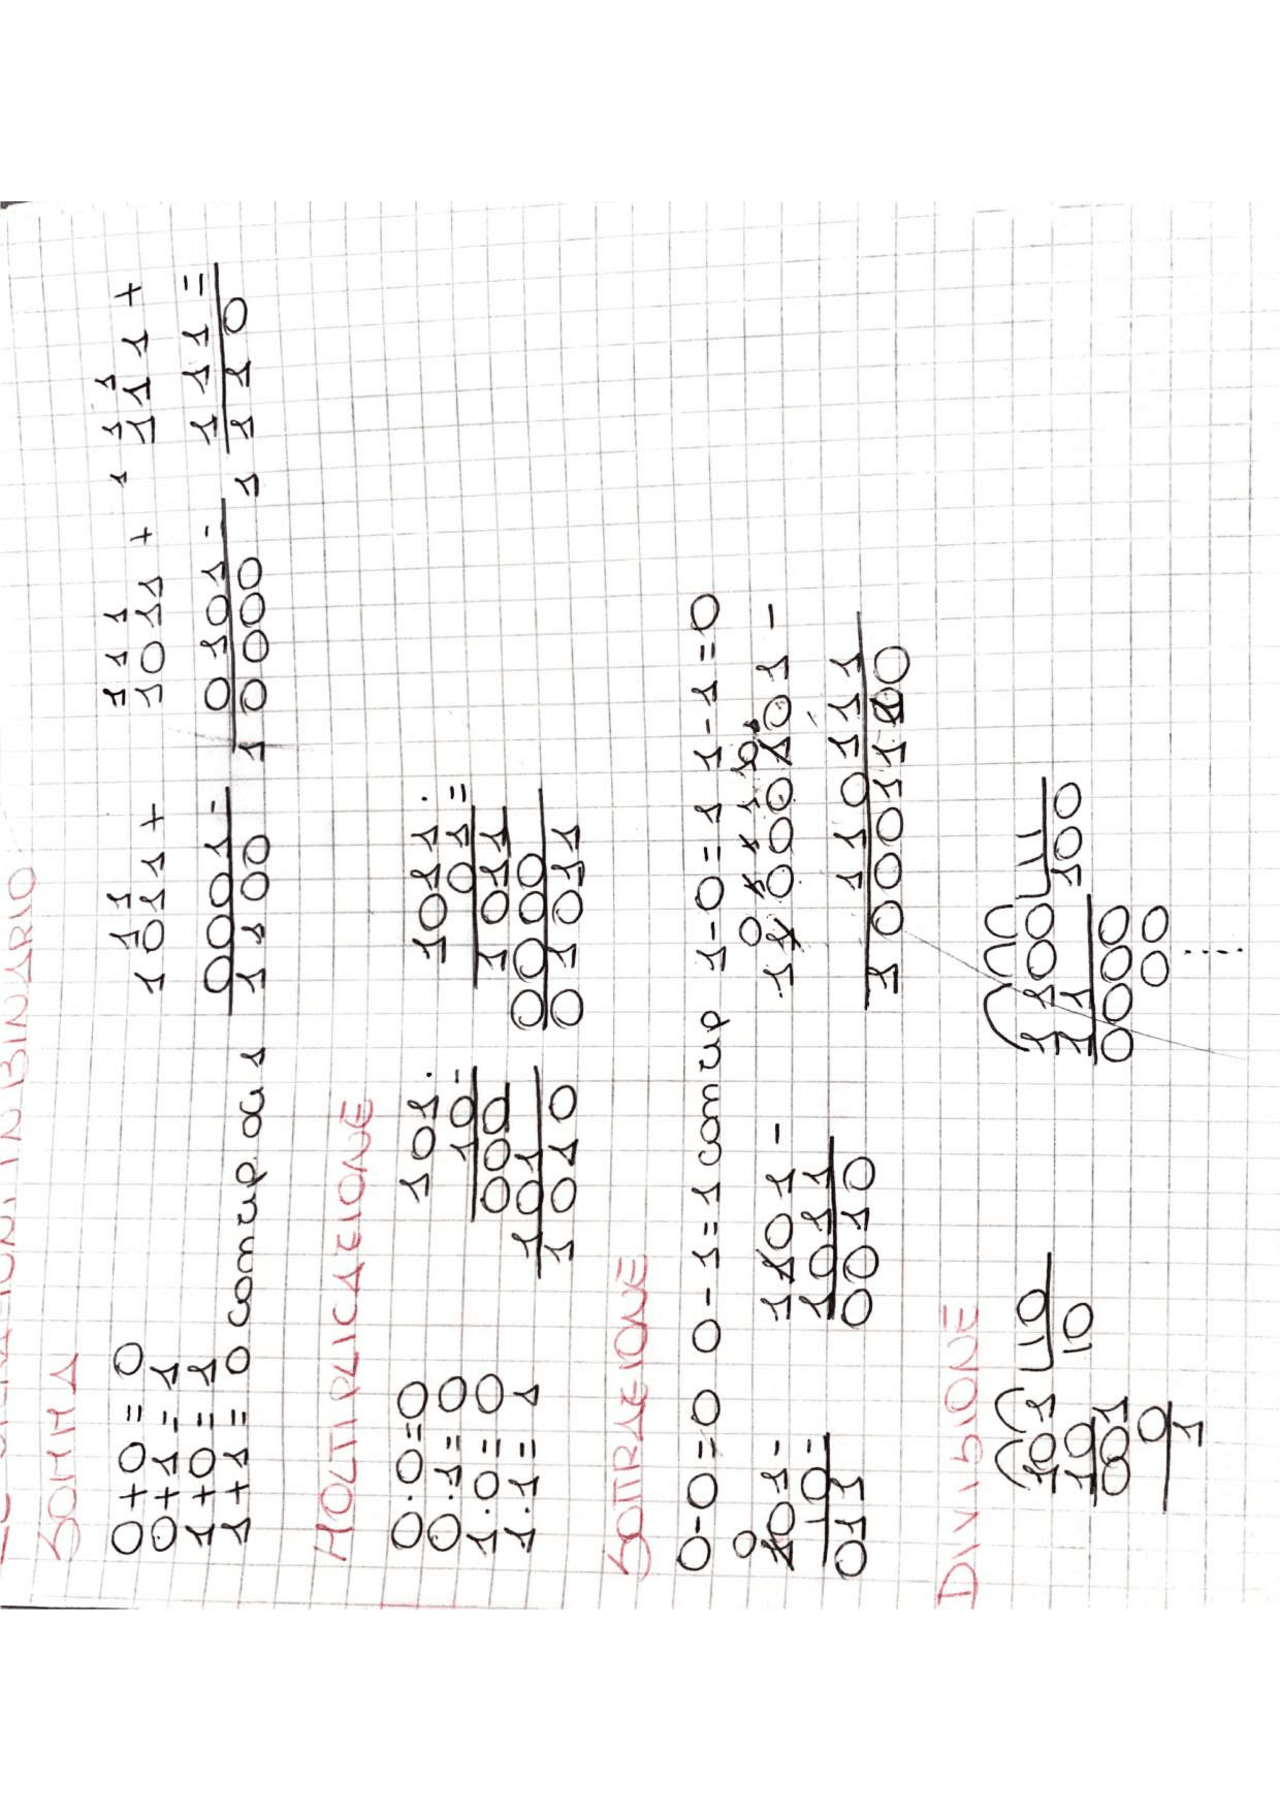 LE OPERAZIONI IN BINARIO
SOMMA
0+0=0
0+1=1
1+0=1
1+1=0 com rip. di 1
1 1
1011+
0001=
1100
1 1 1
1011 +
0101=
10000
1 1 1
111 +
111=
1110
MOLTIPLICAZIONE
0·0=0
0·1=0
1·0=0
1·1=1
101·
10=
000
101
1010
1011·
01=
1011
0000
01011
SOTTRAZIONE
0-0=0 0-1=1 com rip 1-0=1 1-1=0
0
101-
10=
011
1101-
1011
0010
110111
DIVISIONE
101 10
10 10
001
0
1
1100 11
11 100
0000
00